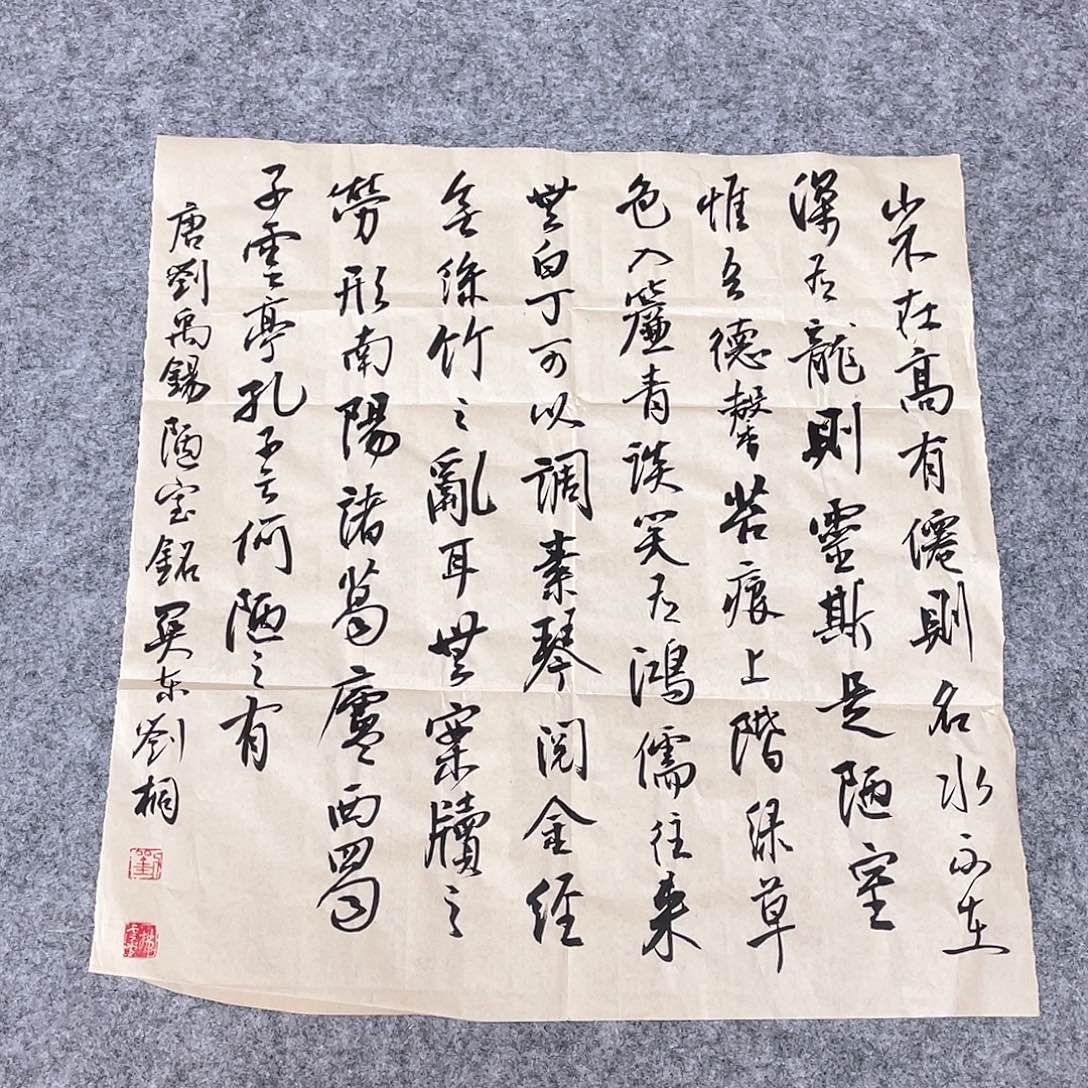 山不在高有僊則名水不在
深有龍則靈斯是陋室
惟吾德馨苔痕上階緑草
色入簾青談笑有鴻儒往来
無白丁可以調素琴閲金經
無絲竹之亂耳無案牘之
勞形南陽諸葛廬西蜀
子雲亭孔子云何陋之有
唐劉禹錫陋室銘东劉桐